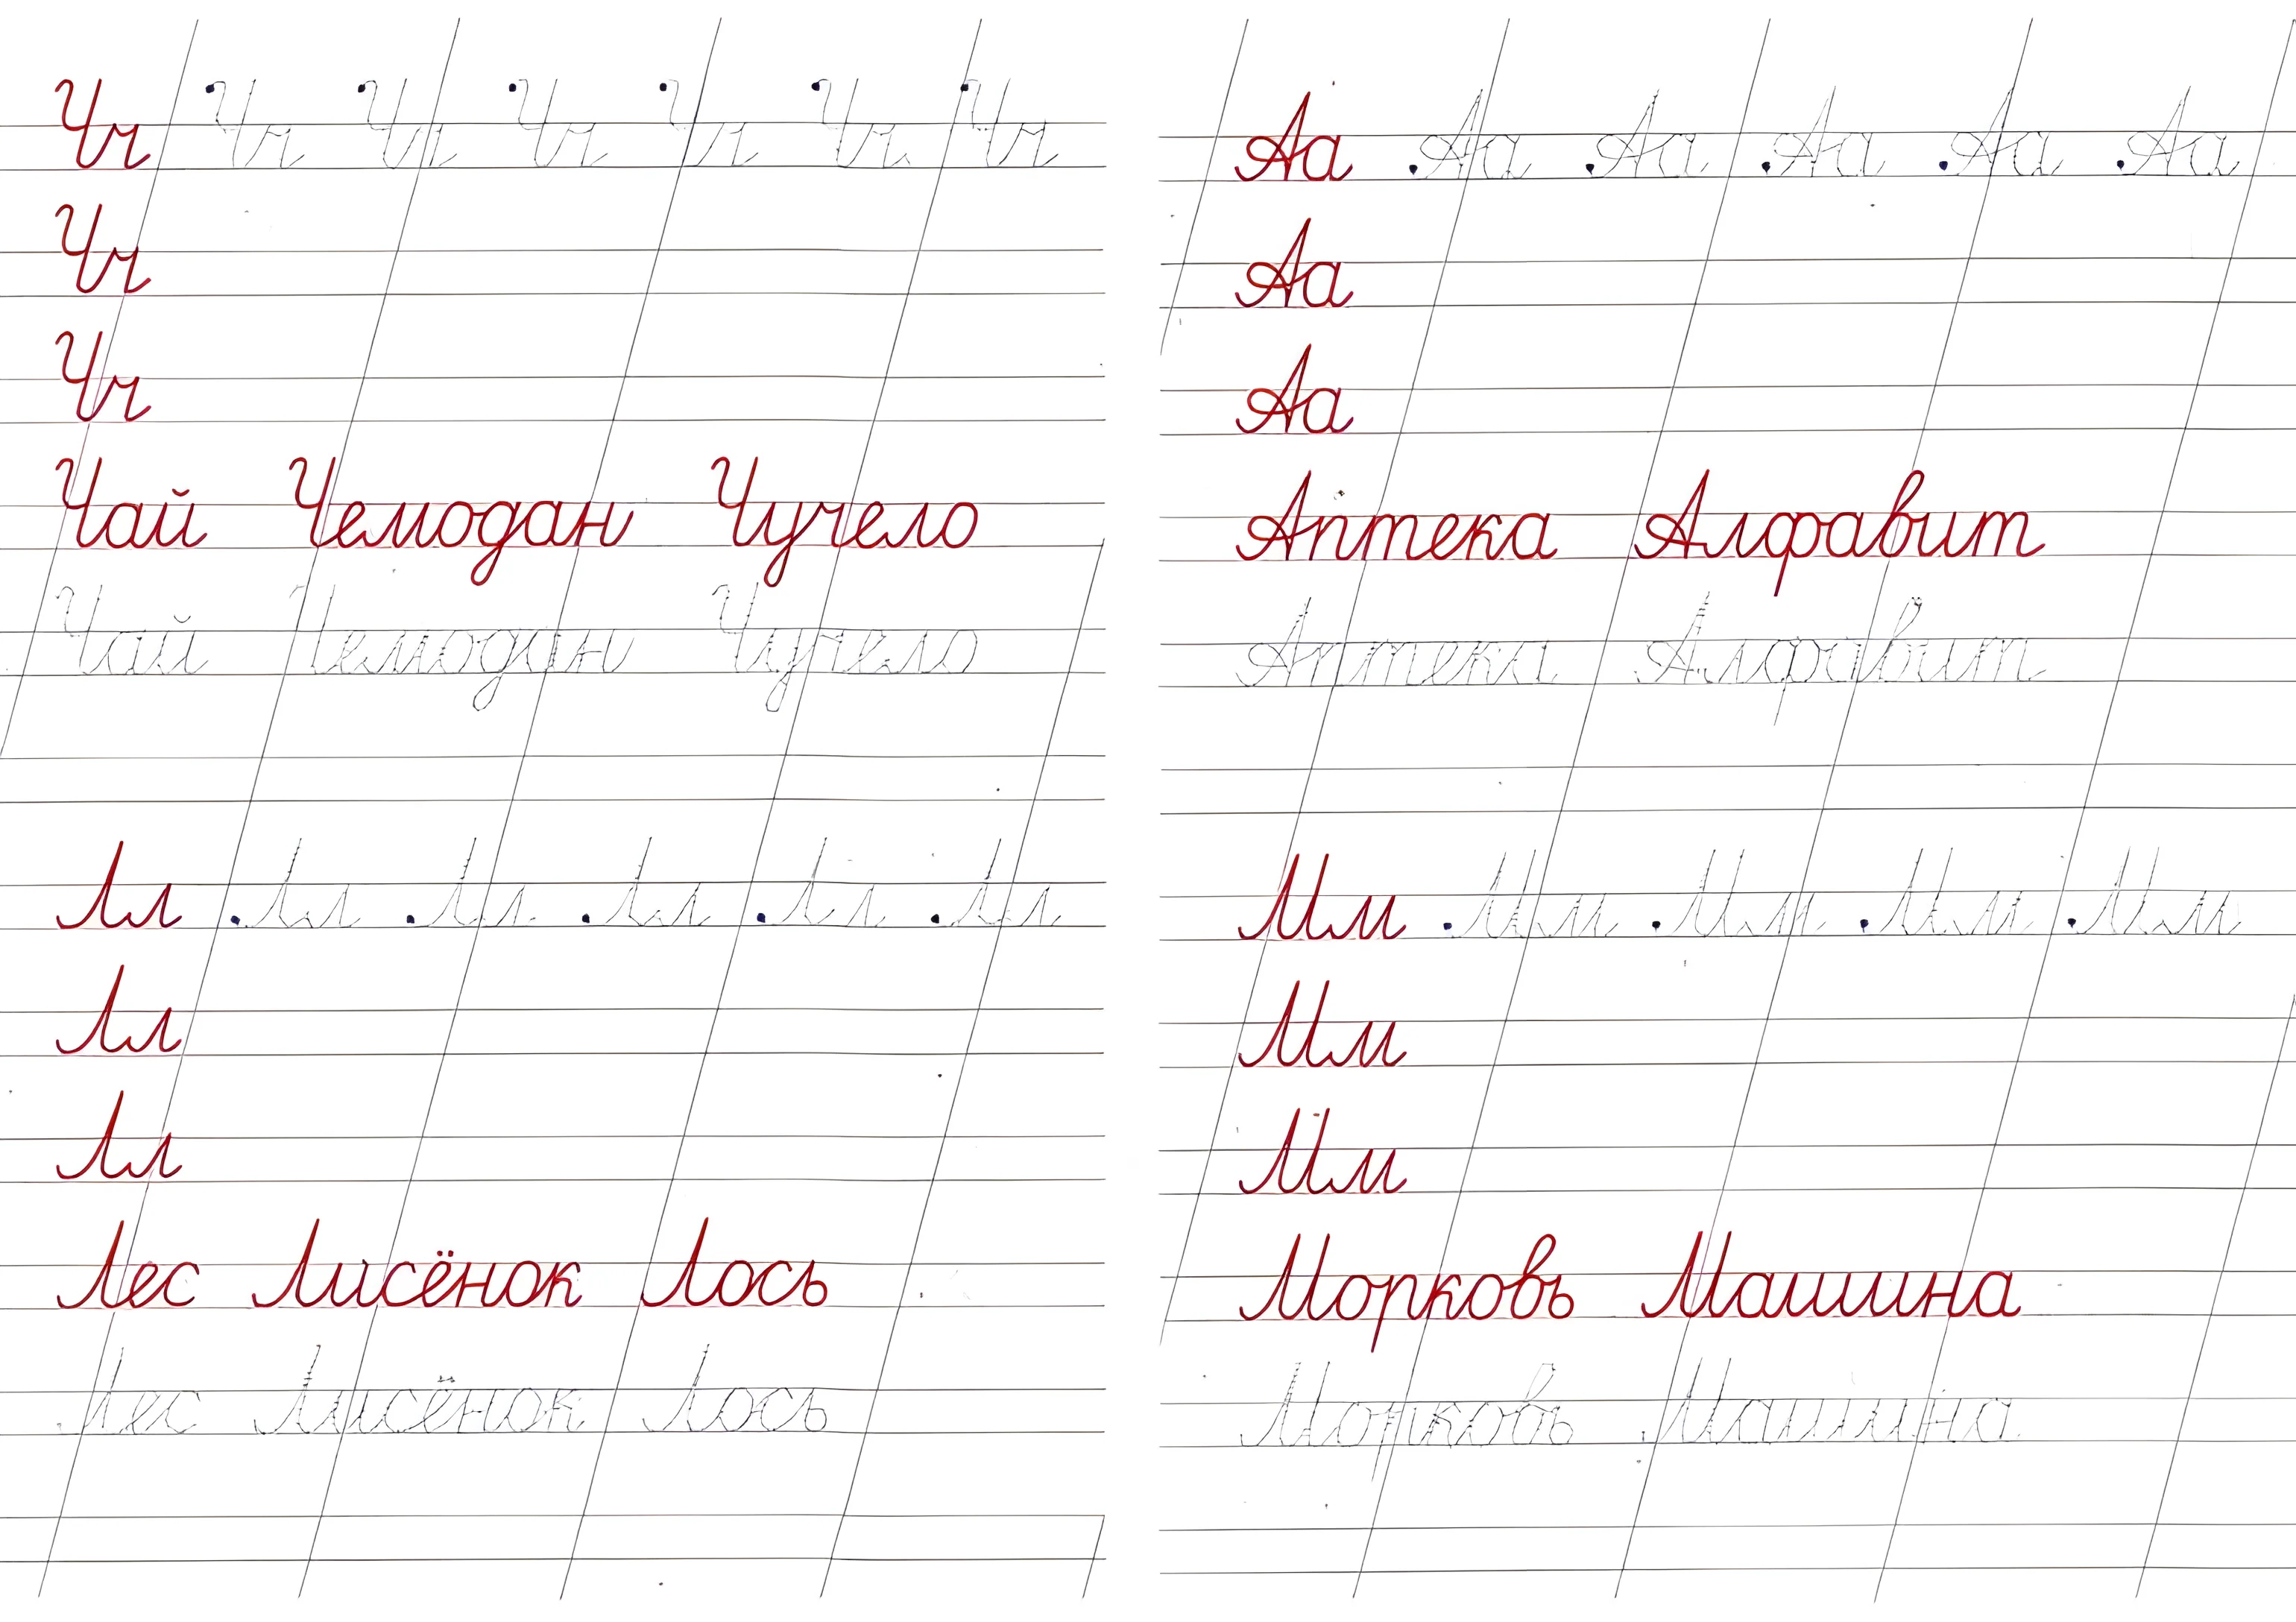 Чч Чч Чч Чч Чч Чч Чч
Чч
Чч
Чай Чемодан Чучело
Чай Чемодан Чучело
Лл Лл Лл Лл Лл Лл
Лл
Лл
Лес Лисёнок Лось
Лес Лисёнок Лось
Аа Аа Аа Аа Аа Аа
Аа
Аа
Аптека Алфавит
Аптека Алфавит
Мм Мм Мм Мм Мм
Мм
Мм
Морковь Машина
Морковь Машина